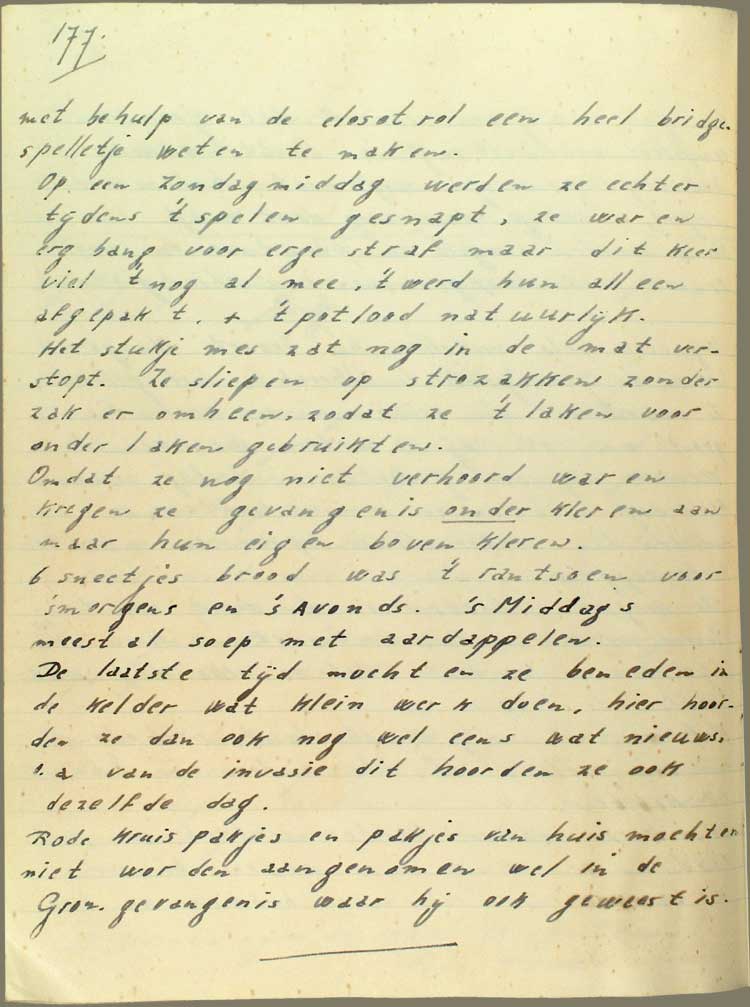 177.
met behulp van de closetrol een heel bridge-
spelletje weten te maken.
Op een Zondagmiddag werden ze echter
tijdens 't spelen gesnapt, ze waren
erg bang voor erge straf maar dit keer
viel 't nog al mee, 't werd hun alleen
afgepakt, + 't potlood natuurlijk.
Het stukje mes zat nog in de mat ver-
stopt. Ze sliepen op strozakken zonder
zak er omheen, zodat ze 't laken voor
onder laken gebruikten.
Omdat ze nog niet verhoord waren
kregen ze gevangenis onder kleren aan
maar hun eigen boven kleren.
6 sneetjes brood was 't rantsoen voor
'smorgens en 's Avonds. 's Middags
meestal soep met aardappelen.
De laatste tijd mochten ze beneden in
de kelder wat klein werk doen, hier hoor-
den ze dan ook nog wel eens wat nieuws.
o.a van de invasie dit hoorden ze ook
dezelfde dag.
Rode Kruis pakjes en pakjes van huis mochten
niet worden aangenomen wel in de
Gron. gevangenis waar hij ook geweest is.